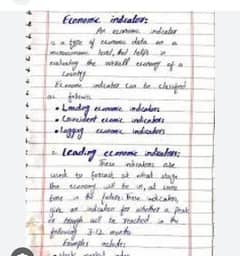 Economic indicators:
An economic indicator
is a type of economic data on a
level, that helps in
evaluating the overall economy of a
country
Economic indicator can be classified
as follows
• Leading economic indicators
• Coincident economic indicators
• lagging economic indicators
Leading economic indicators:
These indicators are
used to forecast at what stage
the economy will be in, at some
time in the future. These indicators
give an indication for whether a peak
or trough will be reached in the
following 3-12 months
Examples include: